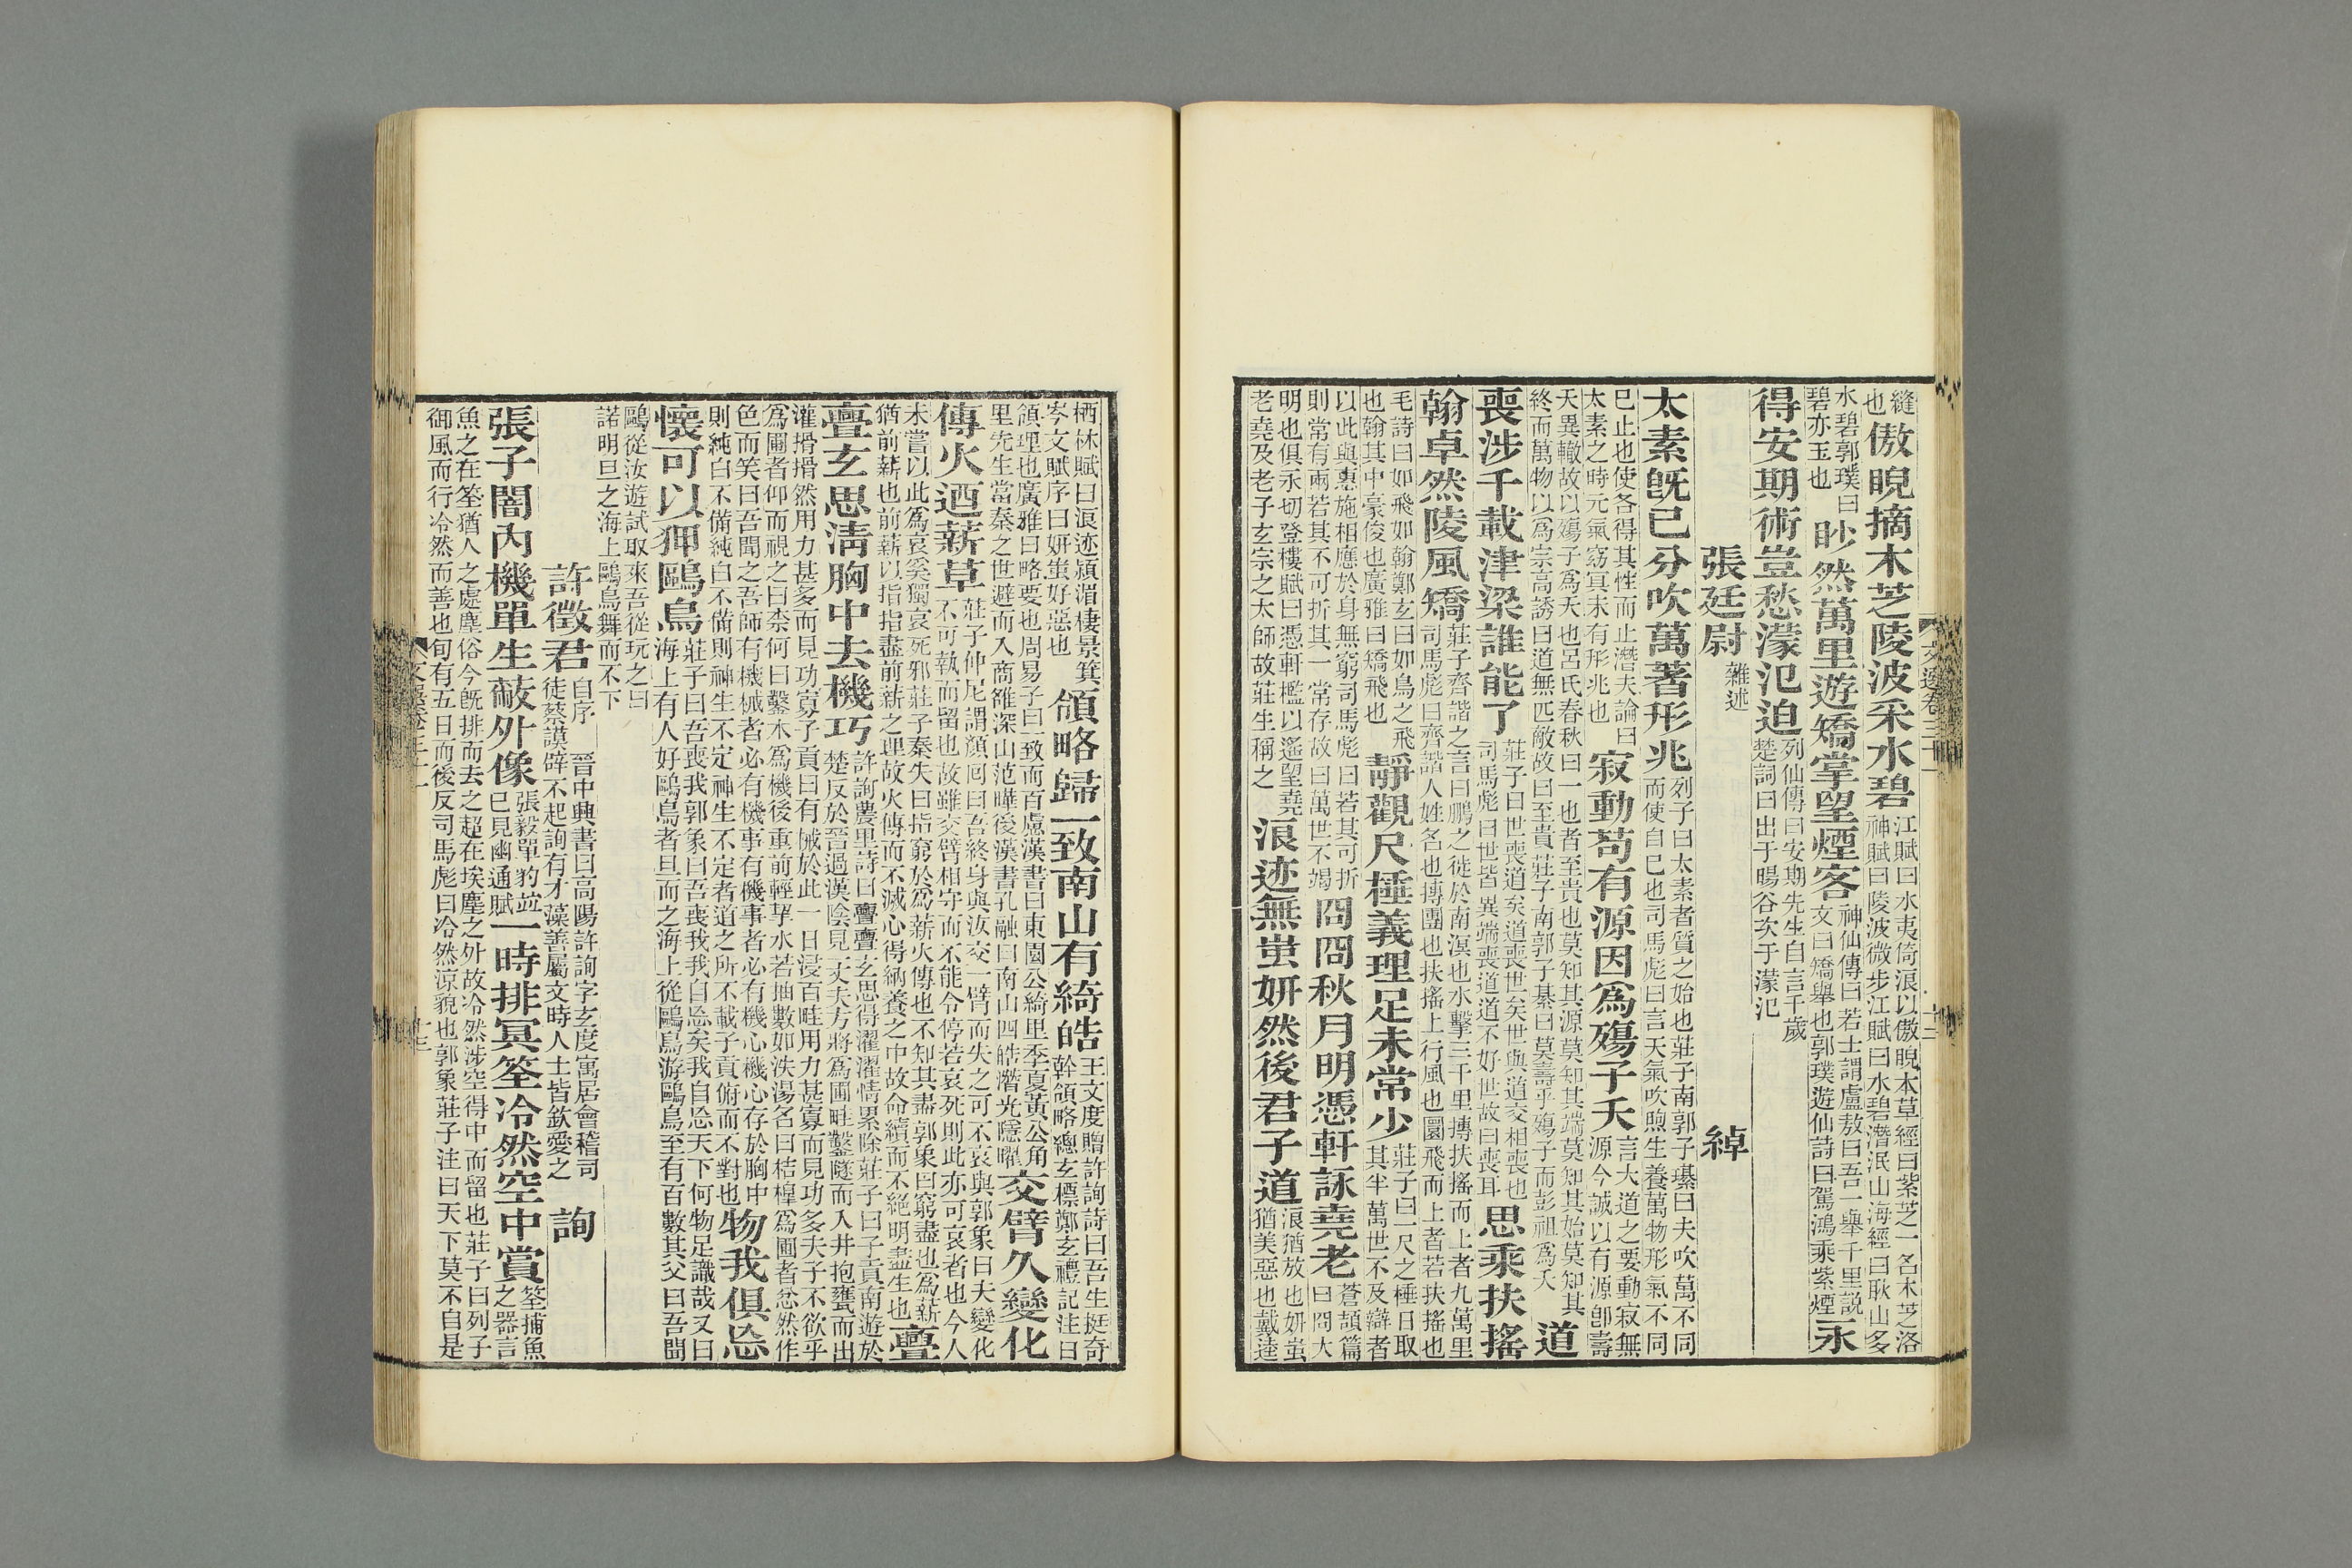 縫也傲睨摘木芝陵波采水碧江賦曰水夷倚浪以傲睨本草經曰紫芝一名木芝洛神賦曰陵波微步江賦曰水碧潛泯山海經曰耿山多
水碧郭璞曰碧亦玉也眇然萬里遊矯掌望煙客神仙傳曰若士謂盧敖曰吾一舉千里説文曰矯舉也郭璞遊仙詩曰駕鴻乘紫煙永
得安期術豈愁濛汜迫列仙傳曰安期先生自言千歲楚詞曰出于暘谷次于濛汜
張廷尉雜述 綽
太素旣已分吹萬著形兆列子曰太素者質之始也莊子南郭子綦曰夫吹萬不同而使自已也司馬彪曰言天氣吹煦生養萬物形氣不同
已止也使各得其性而止潛夫論曰太素之時元氣窈冥未有形兆也寂動苟有源因爲殤子夭言大道之要動寂無源今誠以有源卽壽
夭異轍故以殤子爲夭也呂氏春秋曰一也者至貴也莫知其源莫知其端莫知其始莫知其終而萬物以爲宗高誘曰道無匹敵故曰至貴莊子南郭子綦曰莫壽乎殤子而彭祖爲夭道
喪涉千載津梁誰能了莊子曰世喪道矣道喪世矣世與道交相喪也司馬彪曰世皆異端喪道道不好世故曰喪耳思乘扶搖
翰卓然陵風矯莊子齊諧之言曰鵬之徙於南溟也水擊三千里摶扶搖而上者九萬里司馬彪曰齊諧人姓名也摶團也扶搖上行風也圜飛而上者若扶搖也
毛詩曰如飛如翰鄭玄曰如鳥之飛也翰其中豪俊也廣雅曰矯飛也靜觀尺棰義理足未常少莊子曰一尺之棰日取其半萬世不及辯者
以此與惠施相應於身無窮司馬彪曰若其可折則常有兩若其不可折其一常存故曰萬世不竭冏冏秋月明憑軒詠堯老蒼頡篇曰冏大
明也俱永切登樓賦曰憑軒檻以遙望堯老堯及老子玄宗之太師故莊生稱之浪迹無蚩妍然後君子道浪猶放也妍蚩猶美惡也戴逵
文選卷三十一 十二
栖林賦曰浪迹潁湄棲景箕岑文賦序曰妍蚩好惡也領略歸一致南山有綺皓王文度贈許詢詩曰吾生挺奇幹領略總玄標鄭玄禮記注曰
領理也廣雅曰略要也周易子曰一致而百慮漢書曰東園公綺里季夏黃公角里先生當秦之世避而入商雒深山范曄後漢書孔融曰南山四皓潛光隱曜交臂久變化
傳火迺薪草莊子仲尼謂顏回曰吾終身與汝交一臂而失之可不哀與郭象曰夫變化不可執而留也故雖交臂相守而不能令停若哀死則此亦可哀者也今人
未嘗以此爲哀奚獨哀死邪莊子秦失曰指窮於爲薪火傳也不知其盡郭象曰窮盡也爲薪猶前薪也前薪以指指盡前薪之理故火傳而不滅心得納養之中故命續而不絕明盡生也亹
亹玄思淸胸中去機巧許詢農里詩曰亹亹玄思得濯濯情累除莊子曰子貢南遊於楚反於晉過漢陰見一丈夫方將爲圃畦鑿隧而入井抱甕而出
灌搰搰然用力甚多而見功寡子貢曰有械於此一日浸百畦用力甚寡而見功多夫子不欲乎爲圃者仰而視之曰柰何曰鑿木爲機後重前輕挈水若抽數如泆湯名曰桔槹爲圃者忿然作
色而笑曰吾聞之吾師有機械者必有機事有機事者必有機心機心存於胸中則純白不備純白不備則神生不定神生不定者道之所不載子貢俯而不對也物我俱忘
懷可以狎鷗鳥莊子曰吾喪我郭象曰吾喪我我自忘矣我自忘天下何物足識哉又曰海上有人好鷗鳥者旦而之海上從鷗鳥游鷗鳥至有百數其父曰吾聞
鷗從汝遊試取來吾從玩之曰諾明旦之海上鷗鳥舞而不下
許徵君自序 晉中興書曰高陽許詢字玄度寓居會稽司徒蔡謨辟不起詢有才藻善屬文時人士皆欽愛之 詢
張子闇內機單生蔽外像張毅單豹竝已見幽通賦一時排冥筌泠然空中賞筌捕魚之器言
魚之在筌猶人之處塵俗今旣排而去之超在埃塵之外故泠然涉空得中而留也莊子曰列子御風而行泠然而善也旬有五日而後反司馬彪曰泠然涼貌也郭象莊子注曰天下莫不自是
文選卷三十一 十三